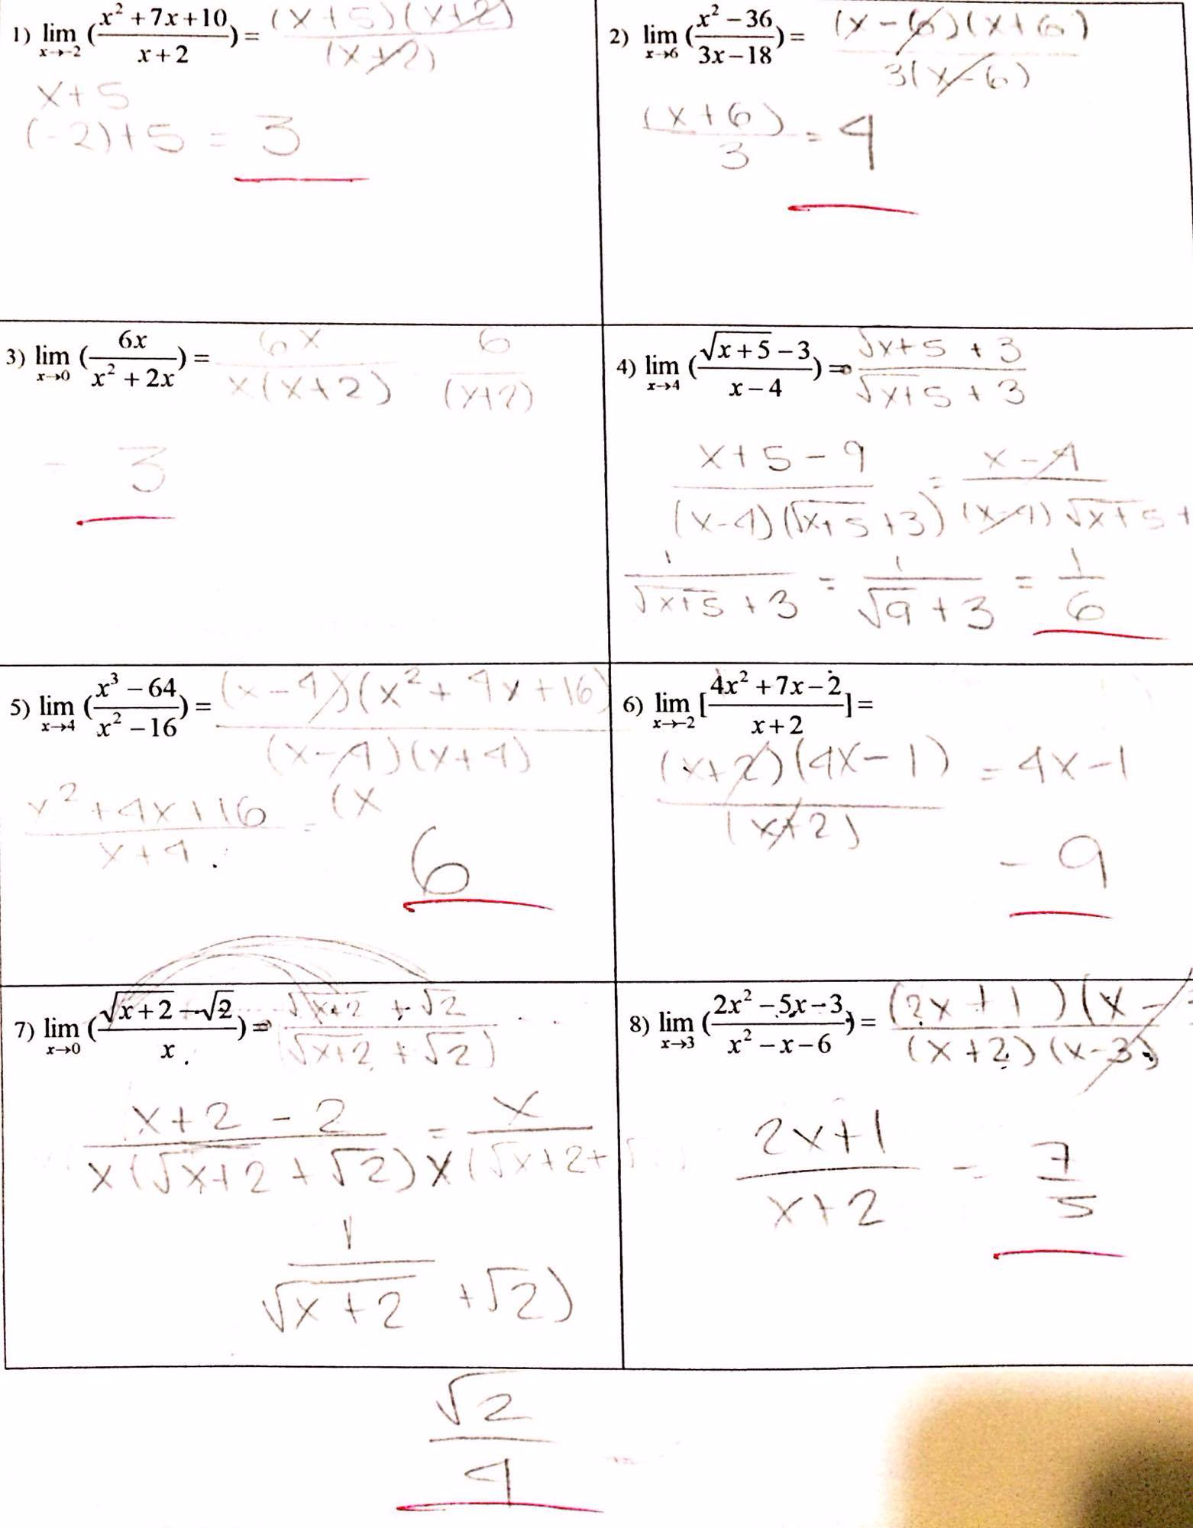 1) lim x→-2 (x² + 7x + 10 / x + 2) = (x+5)(x+2) / (x+2)
x+5
(-2)+5 = 3
2) lim x→6 (x² - 36 / 3x - 18) = (x-6)(x+6) / 3(x-6)
(x+6) / 3 = 4
3) lim x→0 (6x / x² + 2x) = 6x / x(x+2) 6 / (x+2)
- 3
4) lim x→4 (√x+5 - 3 / x - 4) = √x+5 + 3 / √x+5 + 3
x+5-9 / (x-4)(√x+5 +3) = x-4 / (x-4) √x+5 +
1 / √x+5 +3 = 1 / √9 +3 = 1 / 6
5) lim x→4 (x³ - 64 / x² - 16) = (x-4)(x² + 4x + 16) / (x-4)(x+4)
x² + 4x + 16 / x+4 = (x
6
6) lim x→-2 [4x² + 7x - 2 / x + 2] =
(x+2)(4x-1) / (x+2) = 4x-1
-9
7) lim x→0 (√x+2 - √2 / x) = √x+2 + √2 / (√x+2 + √2)
x+2-2 / x(√x+2 + √2) = x / x(√x+2 +
1 / √x+2 + √2)
√2 / 4
8) lim x→3 (2x² - 5x - 3 / x² - x - 6) = (2x+1)(x- / (x+2)(x-3)
2x+1 / x+2 = 7 / 5